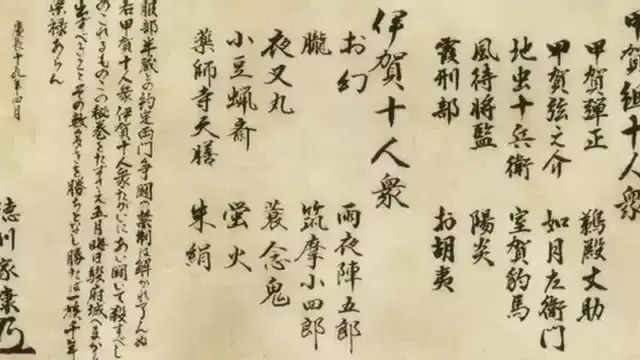 甲賀組十人衆
甲賀彈正　鵜殿丈助
甲賀弦之介　如月左衛門
地虫十兵衛　室賀豹馬
風待将監　陽炎
霞刑部　お胡夷
伊賀十人衆
お幻　雨夜陣五郎
朧　筑摩小四郎
夜叉丸　蓑念鬼
小豆蝋斎　蛍火
薬師寺天膳　朱絹
服部半蔵との約定両門争闘の禁制は解かれ了んぬ
右甲賀十人衆伊賀十人衆たがいにあい闘いて殺すべし
のこれるものこの秘巻をたずさえ五月晦日駿府城へまかり
出ずべきことその数多きを勝ちとなし勝たば一族千年
栄禄あらん
慶長十九年四月
徳川家康